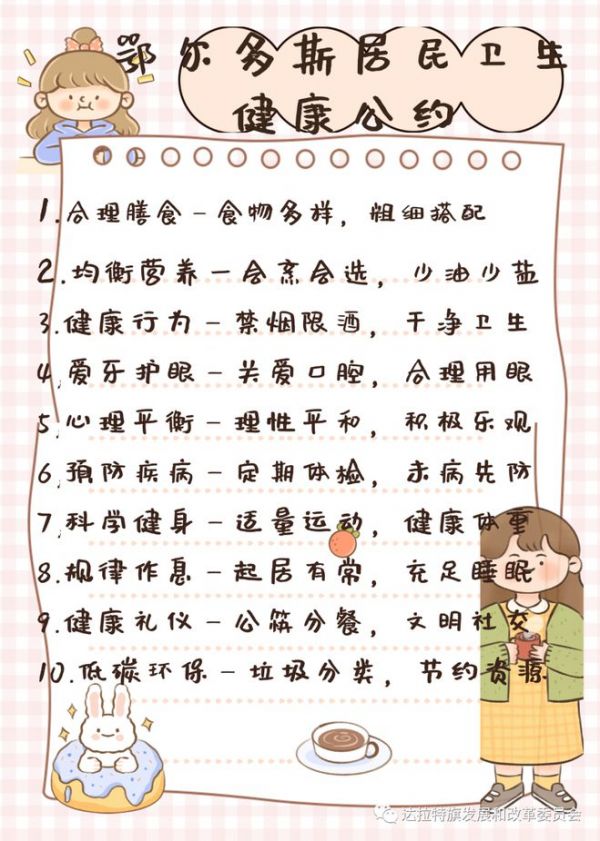 鄂尔多斯居民卫生
健康公约
1.合理膳食-食物多样，粗细搭配
2.均衡营养-会烹会选，少油少盐
3.健康行为-禁烟限酒，干净卫生
4.爱牙护眼-关爱口腔，合理用眼
5.心理平衡-理性平和，积极乐观
6.预防疾病-定期体检，未病先防
7.科学健身-适量运动，健康体重
8.规律作息-起居有常，充足睡眠
9.健康礼仪-公筷分餐，文明社交
10.低碳环保-垃圾分类，节约资源
达拉特旗发展和改革委员会